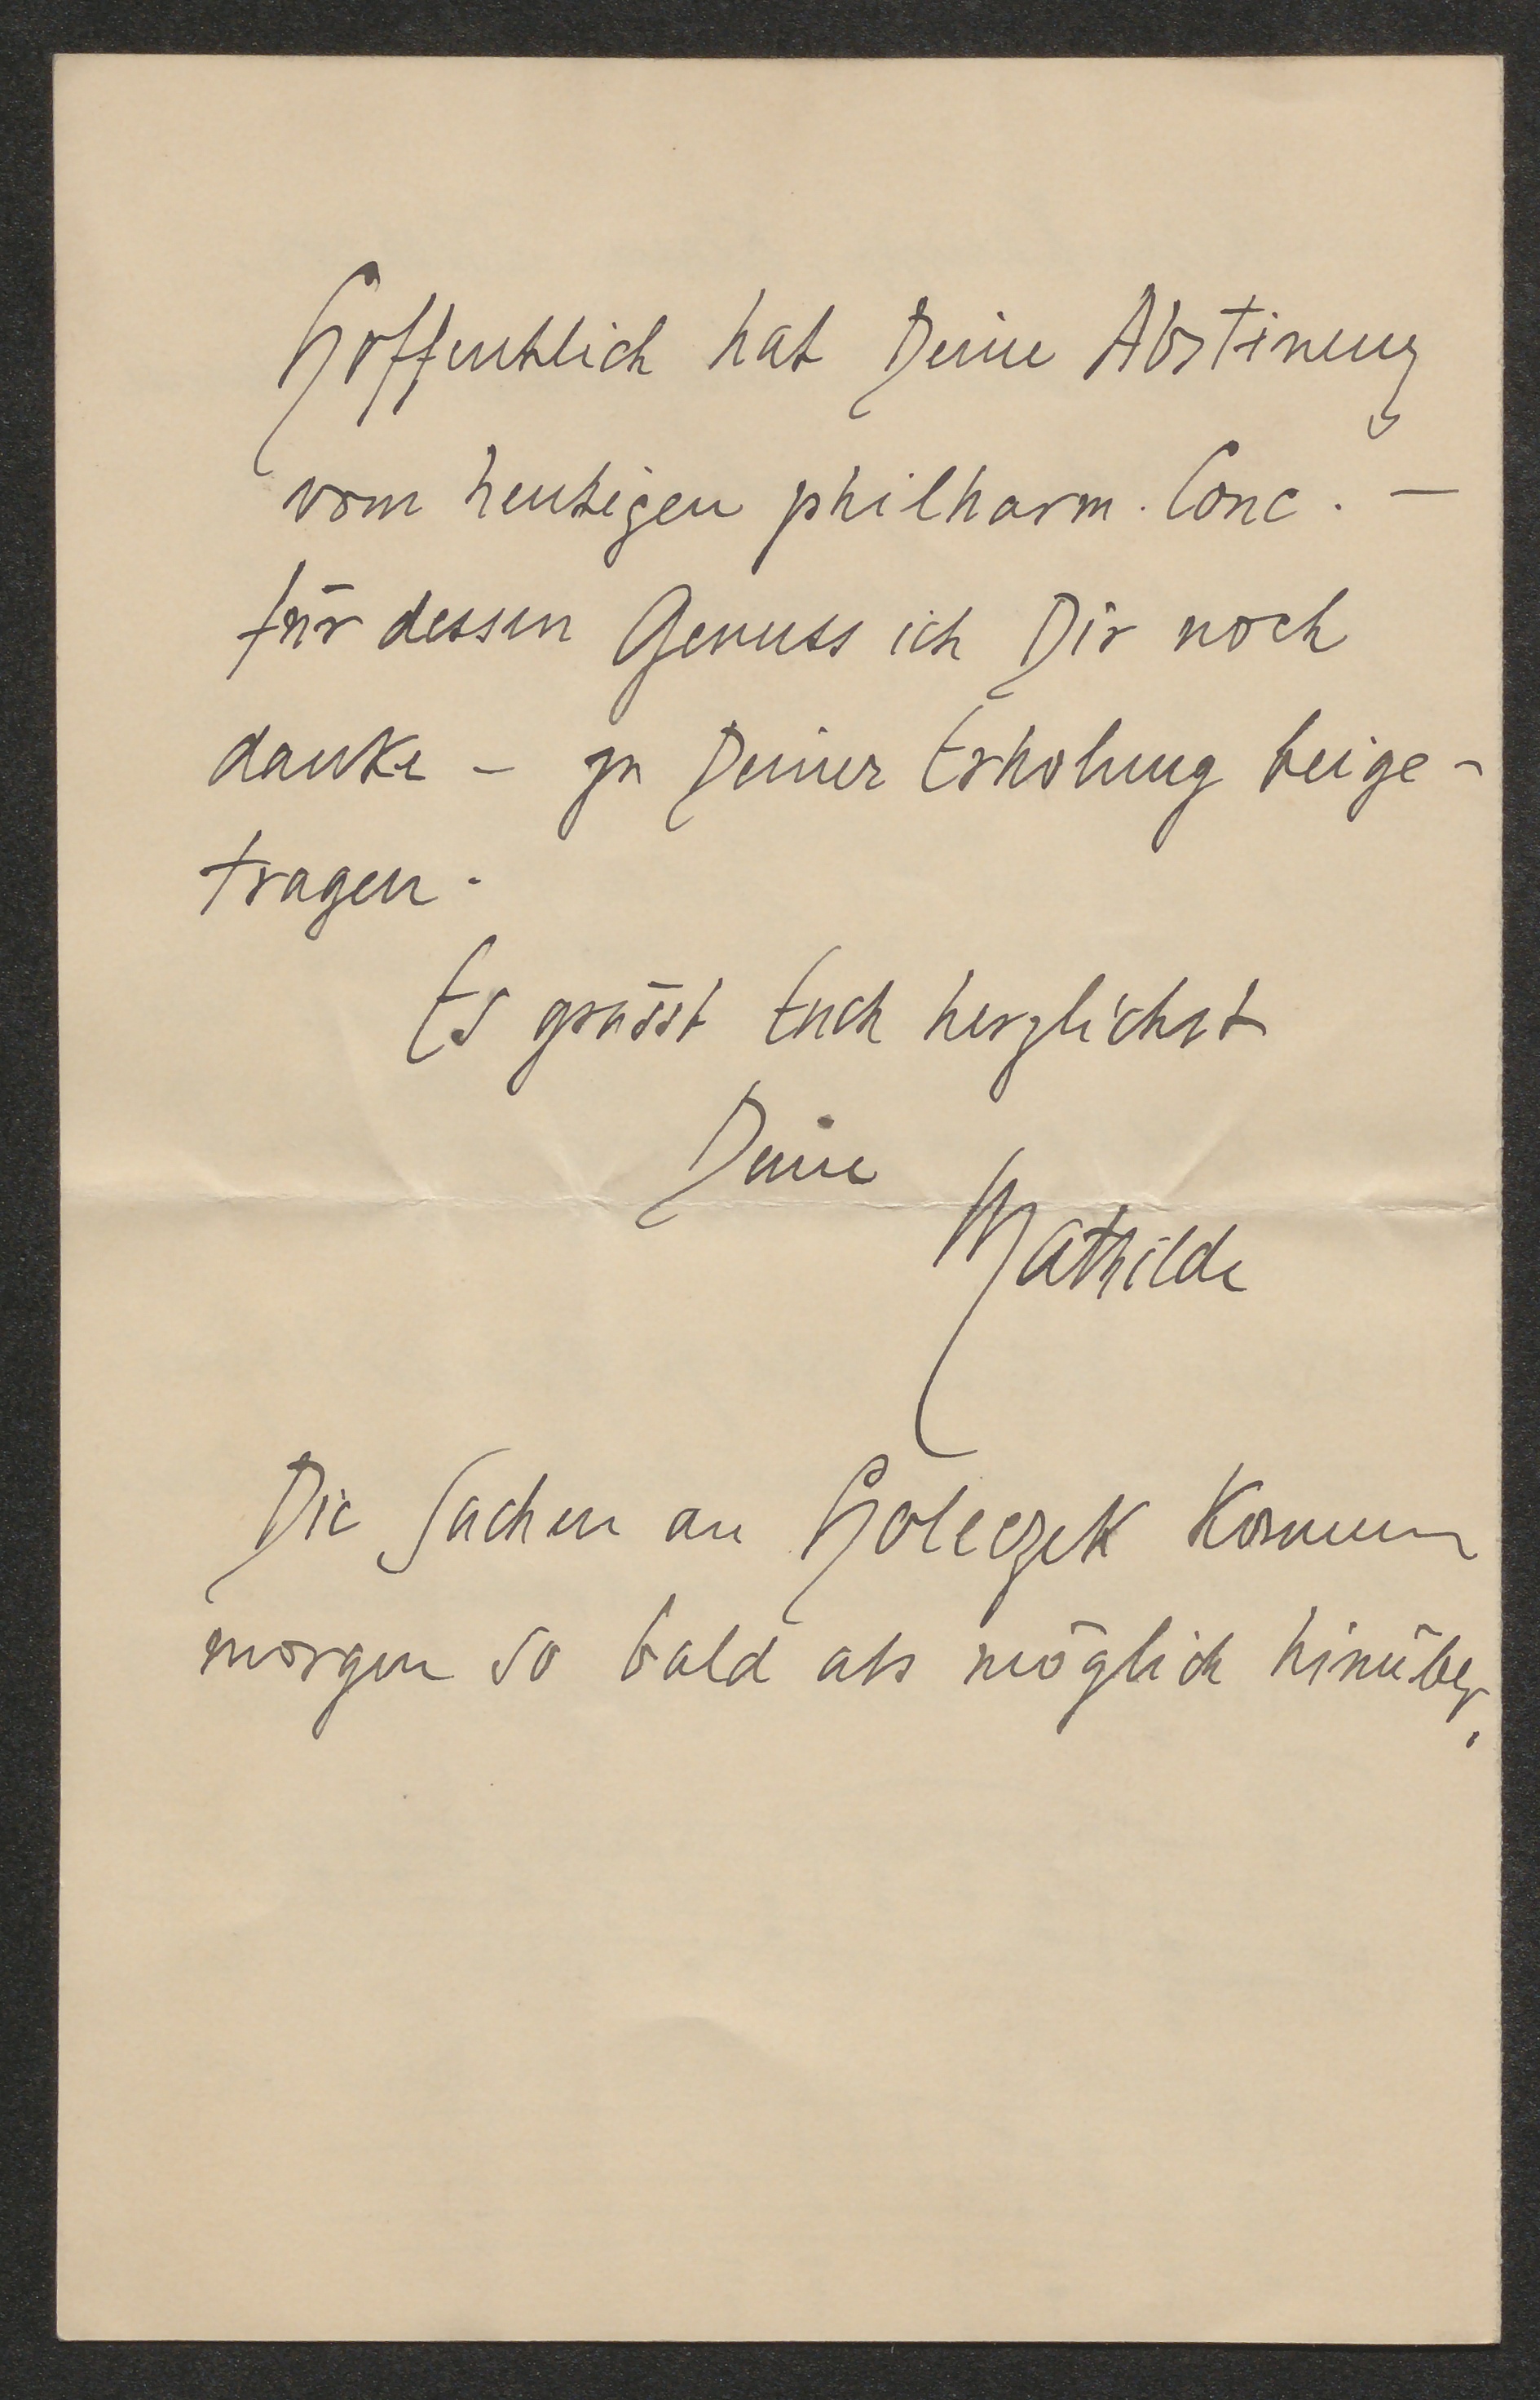 Hoffentlich hat Deine Abstinenz
vom heutigen philharm. Conc. –
für dessen Genuss ich Dir noch
danke – zu Deiner Erholung beige-
tragen.
Es grüsst Euch herzlichst
Deine
Mathilde
Die Sachen an Holeczek kommen
morgen so bald als möglich hinüber.